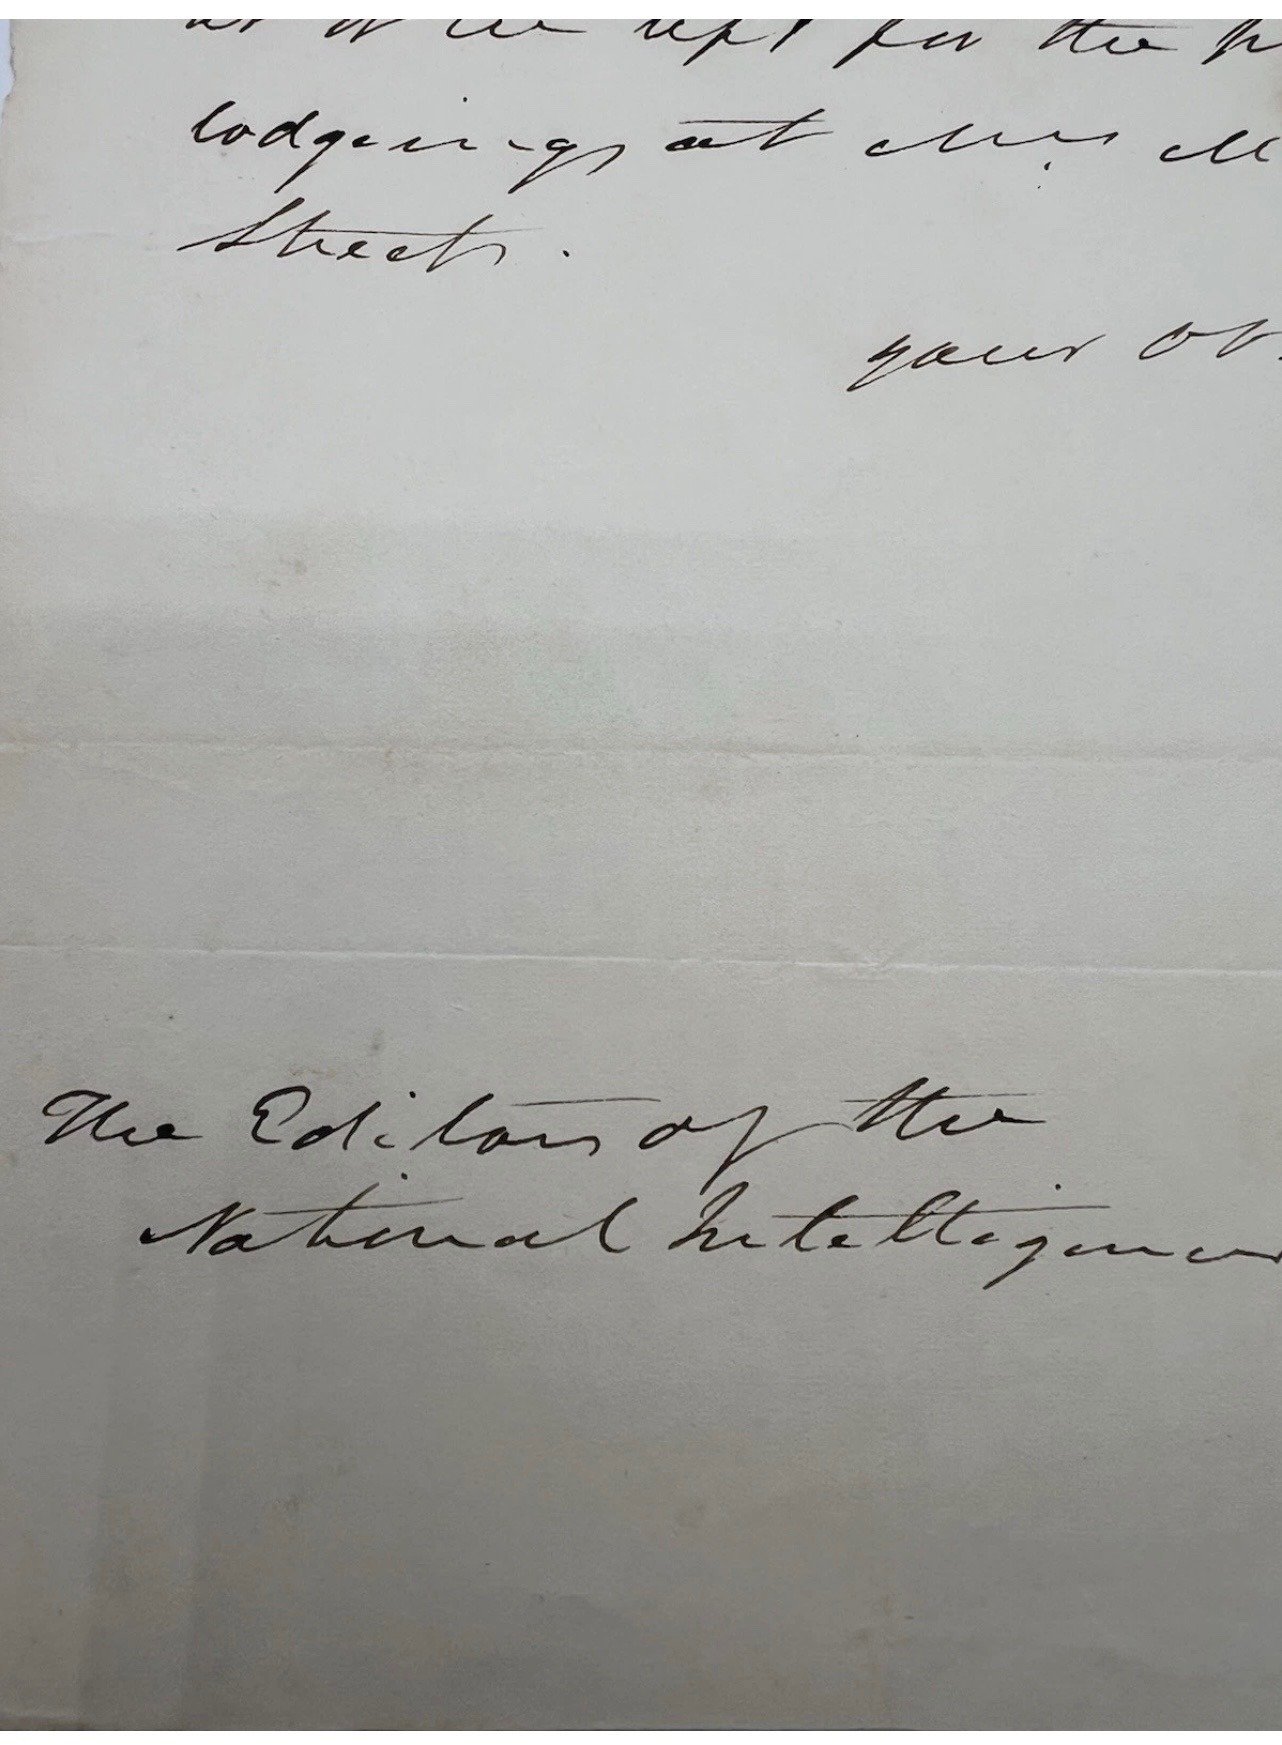 left for the
lodgings at Mrs M
Street.
your Ob
The Editors of the
National Intelligencer